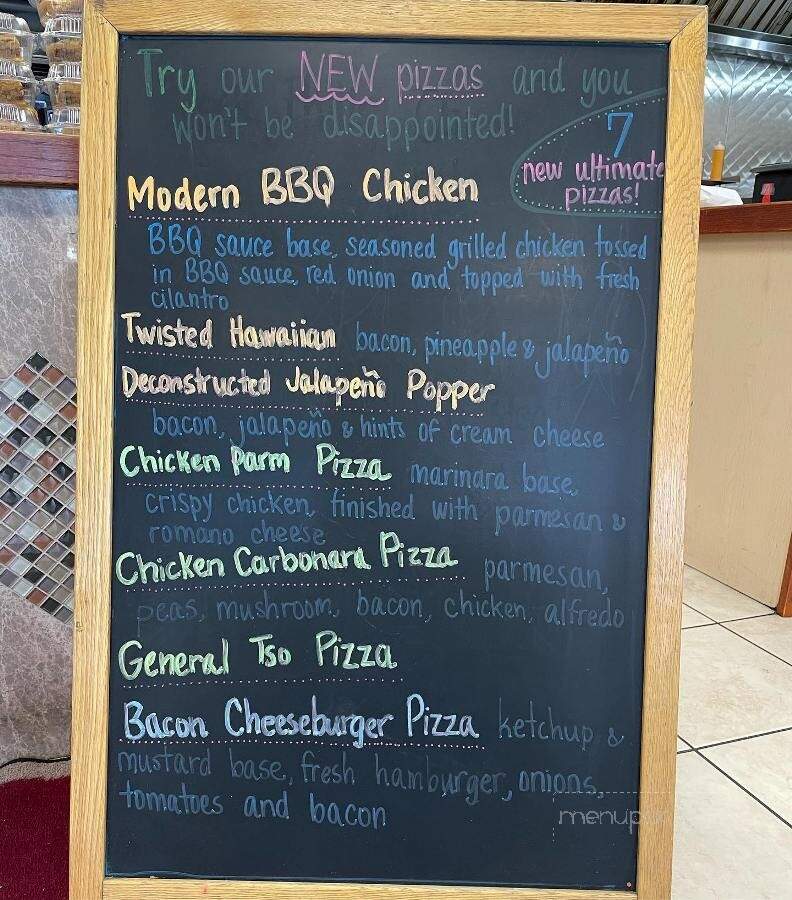 Try our NEW pizzas and you
won't be disappointed!
7
new ultimate
pizzas!
Modern BBQ Chicken
BBQ sauce base, seasoned grilled chicken tossed
in BBQ sauce, red onion and topped with fresh
cilantro
Twisted Hawaiian bacon, pineapple & jalapeño
Deconstructed Jalapeño Popper
bacon, jalapeño & hints of cream cheese
Chicken Parm Pizza marinara base,
crispy chicken, finished with parmesan &
romano cheese
Chicken Carbonara Pizza parmesan,
peas, mushroom, bacon, chicken, alfredo
General Tso Pizza
Bacon Cheeseburger Pizza ketchup &
mustard base, fresh hamburger, onions,
tomatoes and bacon